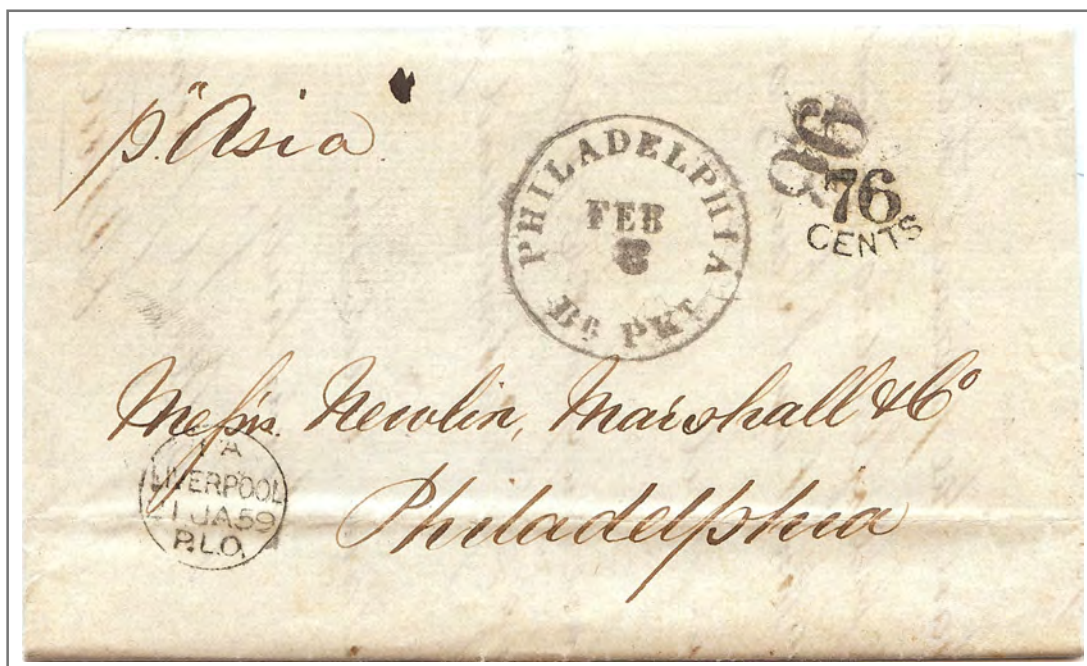 p. "Asia"
PHILADELPHIA
FEB
8
Br PKT
96
76
CENTS
Messrs. Newlin, Marshall & Co
Philadelphia
A
LIVERPOOL
21 JA 59
P.L.O.